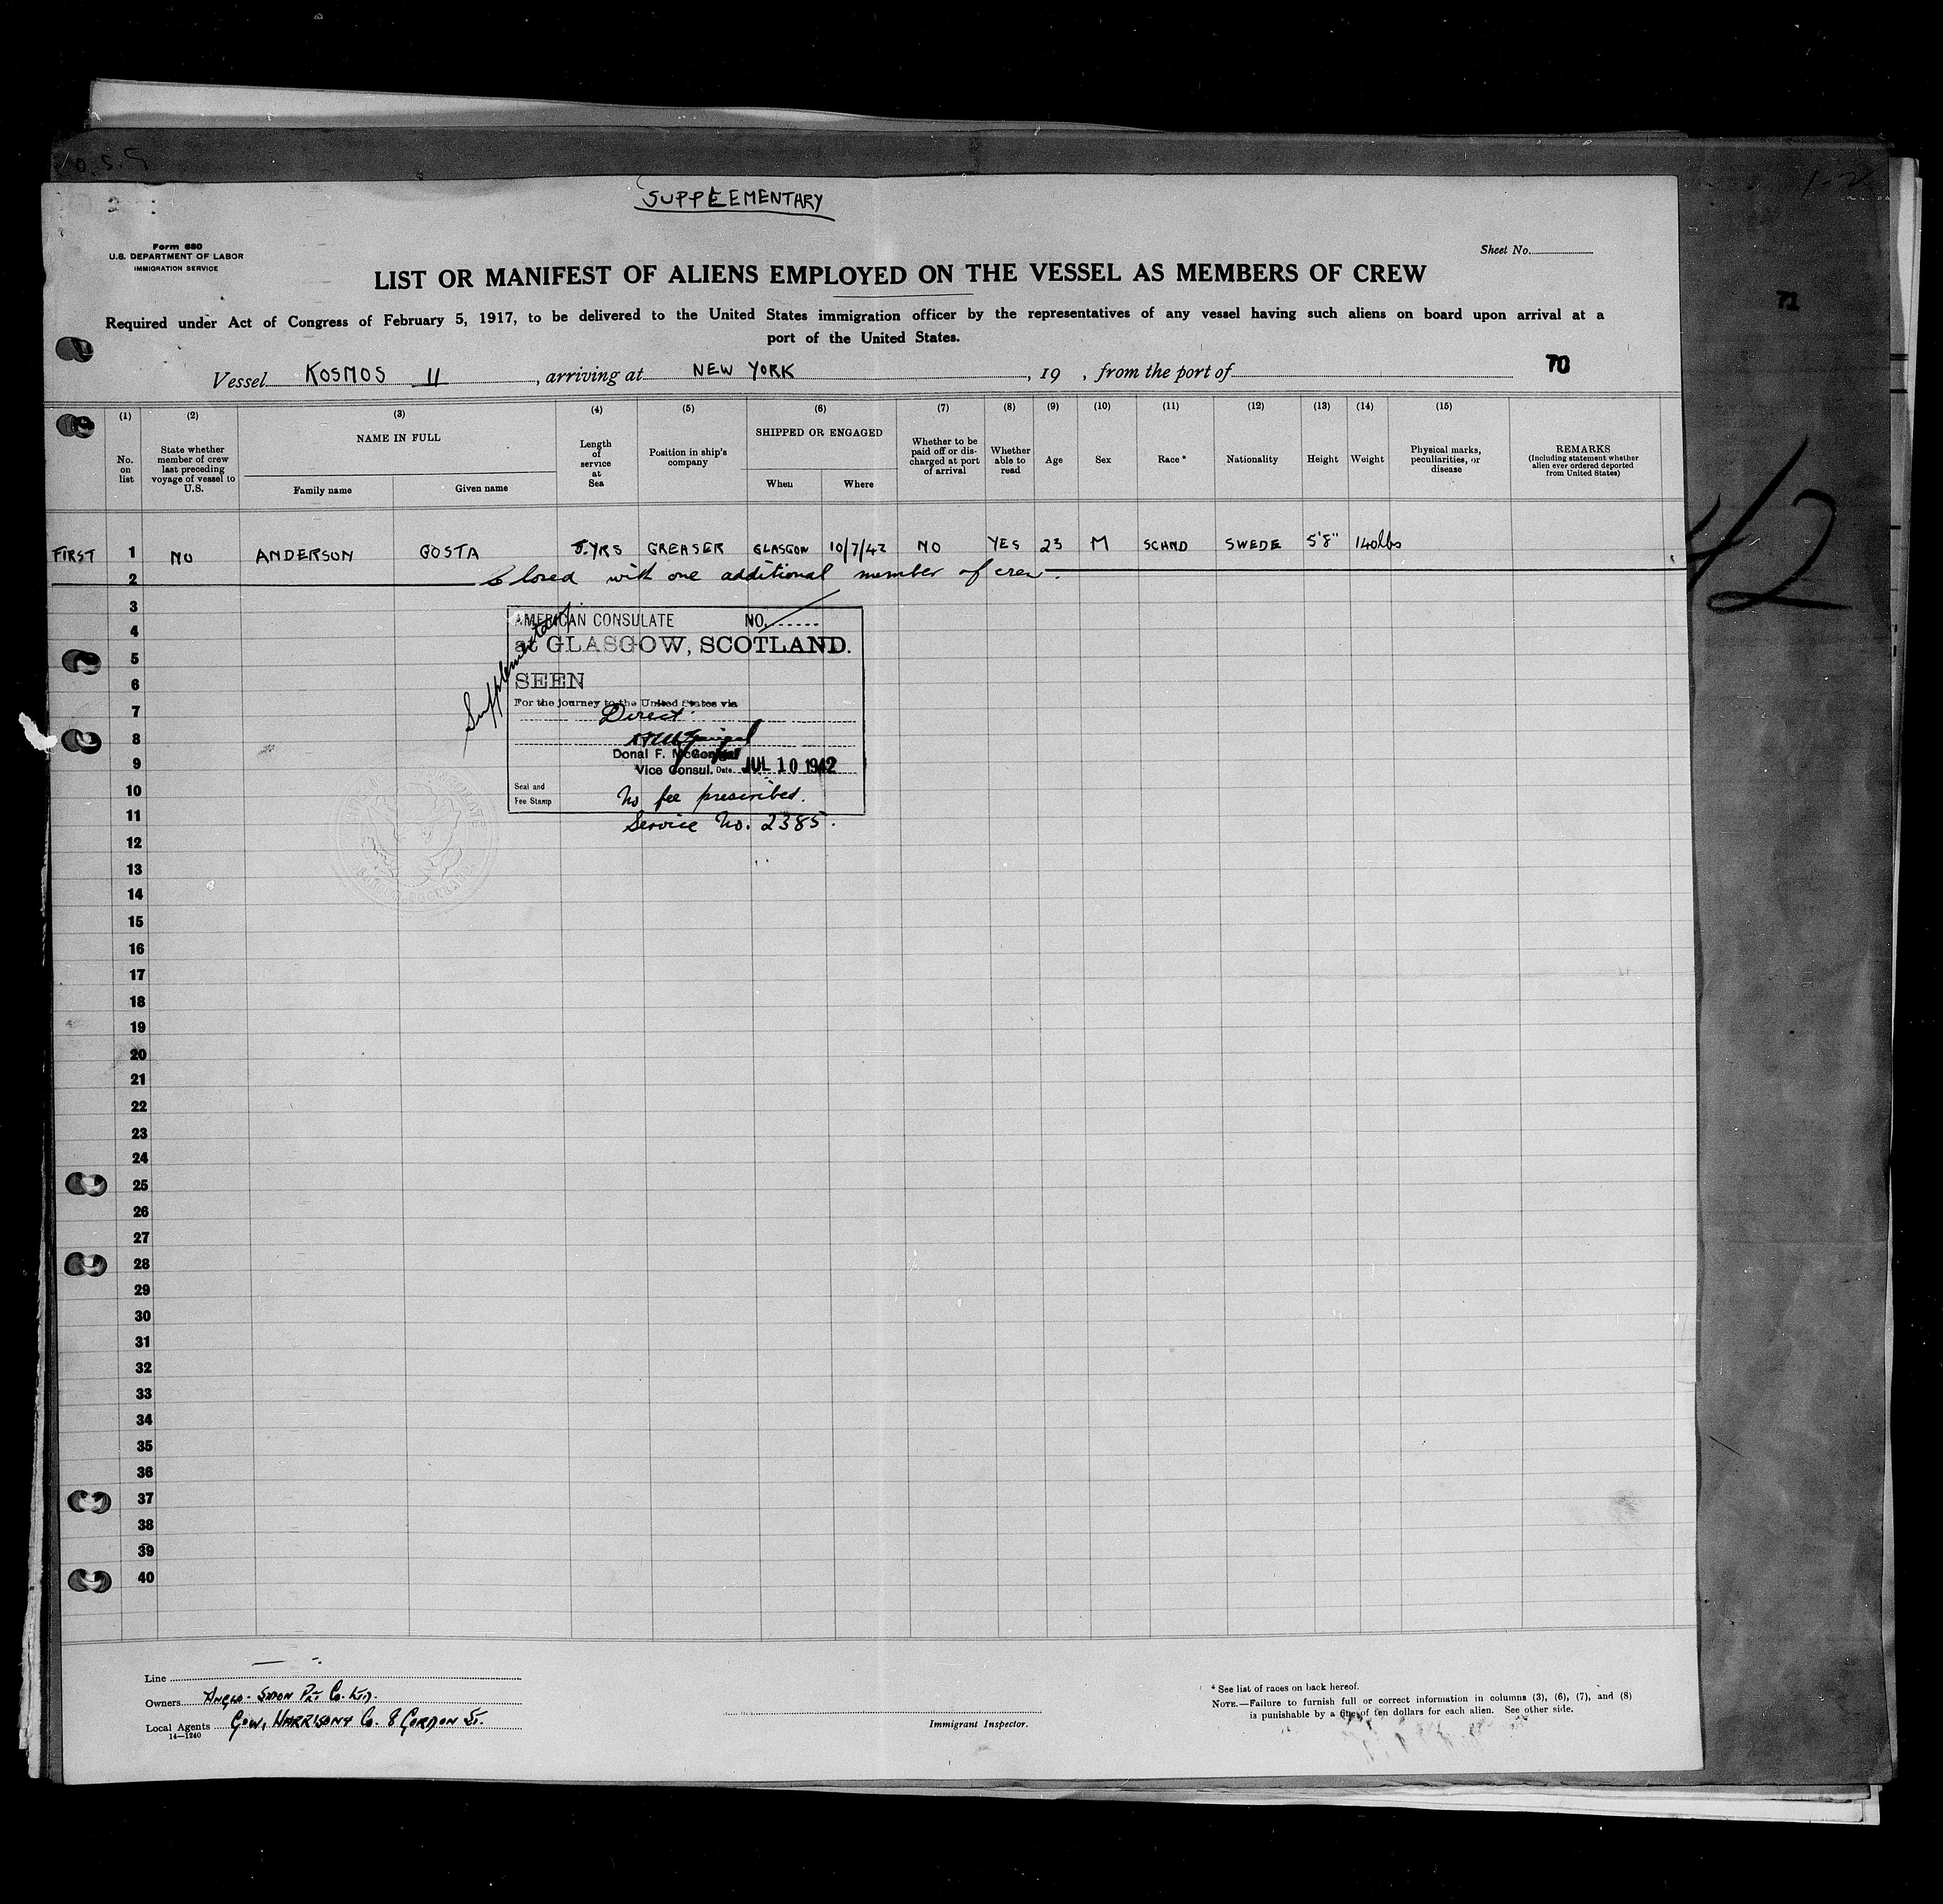 SUPPLEMENTARY
Form 680
U.S. DEPARTMENT OF LABOR
IMMIGRATION SERVICE
Sheet No.
LIST OR MANIFEST OF ALIENS EMPLOYED ON THE VESSEL AS MEMBERS OF CREW
Required under Act of Congress of February 5, 1917, to be delivered to the United States immigration officer by the representatives of any vessel having such aliens on board upon arrival at a
port of the United States.
72
Vessel KOSMOS II, arriving at NEW YORK, 19 , from the port of
70
(1) (2) (3) (4) (5) (6) (7) (8) (9) (10) (11) (12) (13) (14) (15)
No. on list
State whether member of crew last preceding voyage of vessel to U.S.
NAME IN FULL
Family name Given name
Length of service at Sea
Position in ship's company
SHIPPED OR ENGAGED
When Where
Whether to be paid off or discharged at port of arrival
Whether able to read
Age
Sex
Race*
Nationality
Height
Weight
Physical marks, peculiarities, or disease
REMARKS
(Including statement whether alien ever ordered deported from United States)
FIRST 1 NO ANDERSON GOSTA YRS GREASER GLASGOW 10/7/42 NO YES 23 M SCAND SWEDE 5'8" 140lbs
2 Closed with one additional member of crew.
42
3
4
5
6
7
8
9
10
11
12
13
14
15
16
17
18
19
20
21
22
23
24
25
26
27
28
29
30
31
32
33
34
35
36
37
38
39
40
Supplementary
AMERICAN CONSULATE NO.
at GLASGOW, SCOTLAND.
SEEN
For the journey to the United States via
Direct.
Donal F. McGonigal
Vice Consul. Date JUL 10 1942
Seal and
Fee Stamp
No fee prescribed.
Service No. 2385.
Line
Owners ANGLO-SAXON PET. Co. LTD.
Local Agents GOW, HARRISON & Co. 8 GORDON ST.
14—1240
Immigrant Inspector.
* See list of races on back hereof.
NOTE.—Failure to furnish full or correct information in columns (3), (6), (7), and (8)
is punishable by a fine of ten dollars for each alien. See other side.